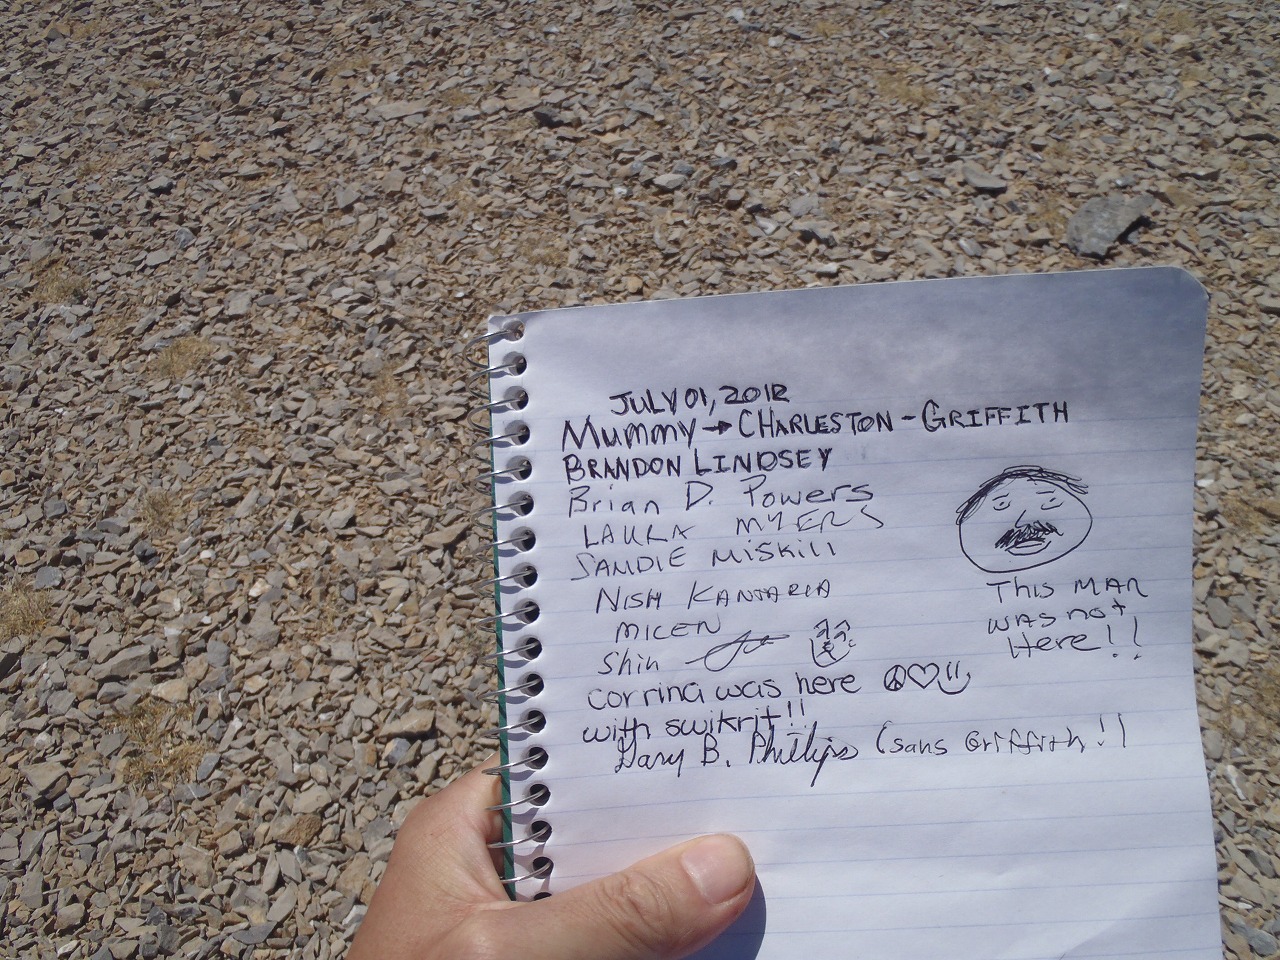 JULY 01, 2012
Mummy → CHARLESTON - GRIFFITH
BRANDON LINDSEY
Brian D. Powers
LAURA MYERS
SANDIE MISKILL
NISH KANTARIA
MICEN
Shin
corrina was here
with swikrit!!
Gary B. Phillips (sans Griffith!)
This MAN
was not
Here!!